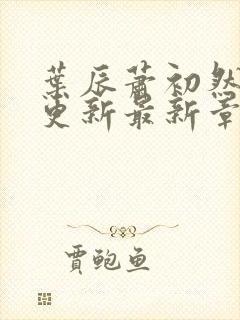 葉辰蕭初然
更新最新章
賈鮑魚